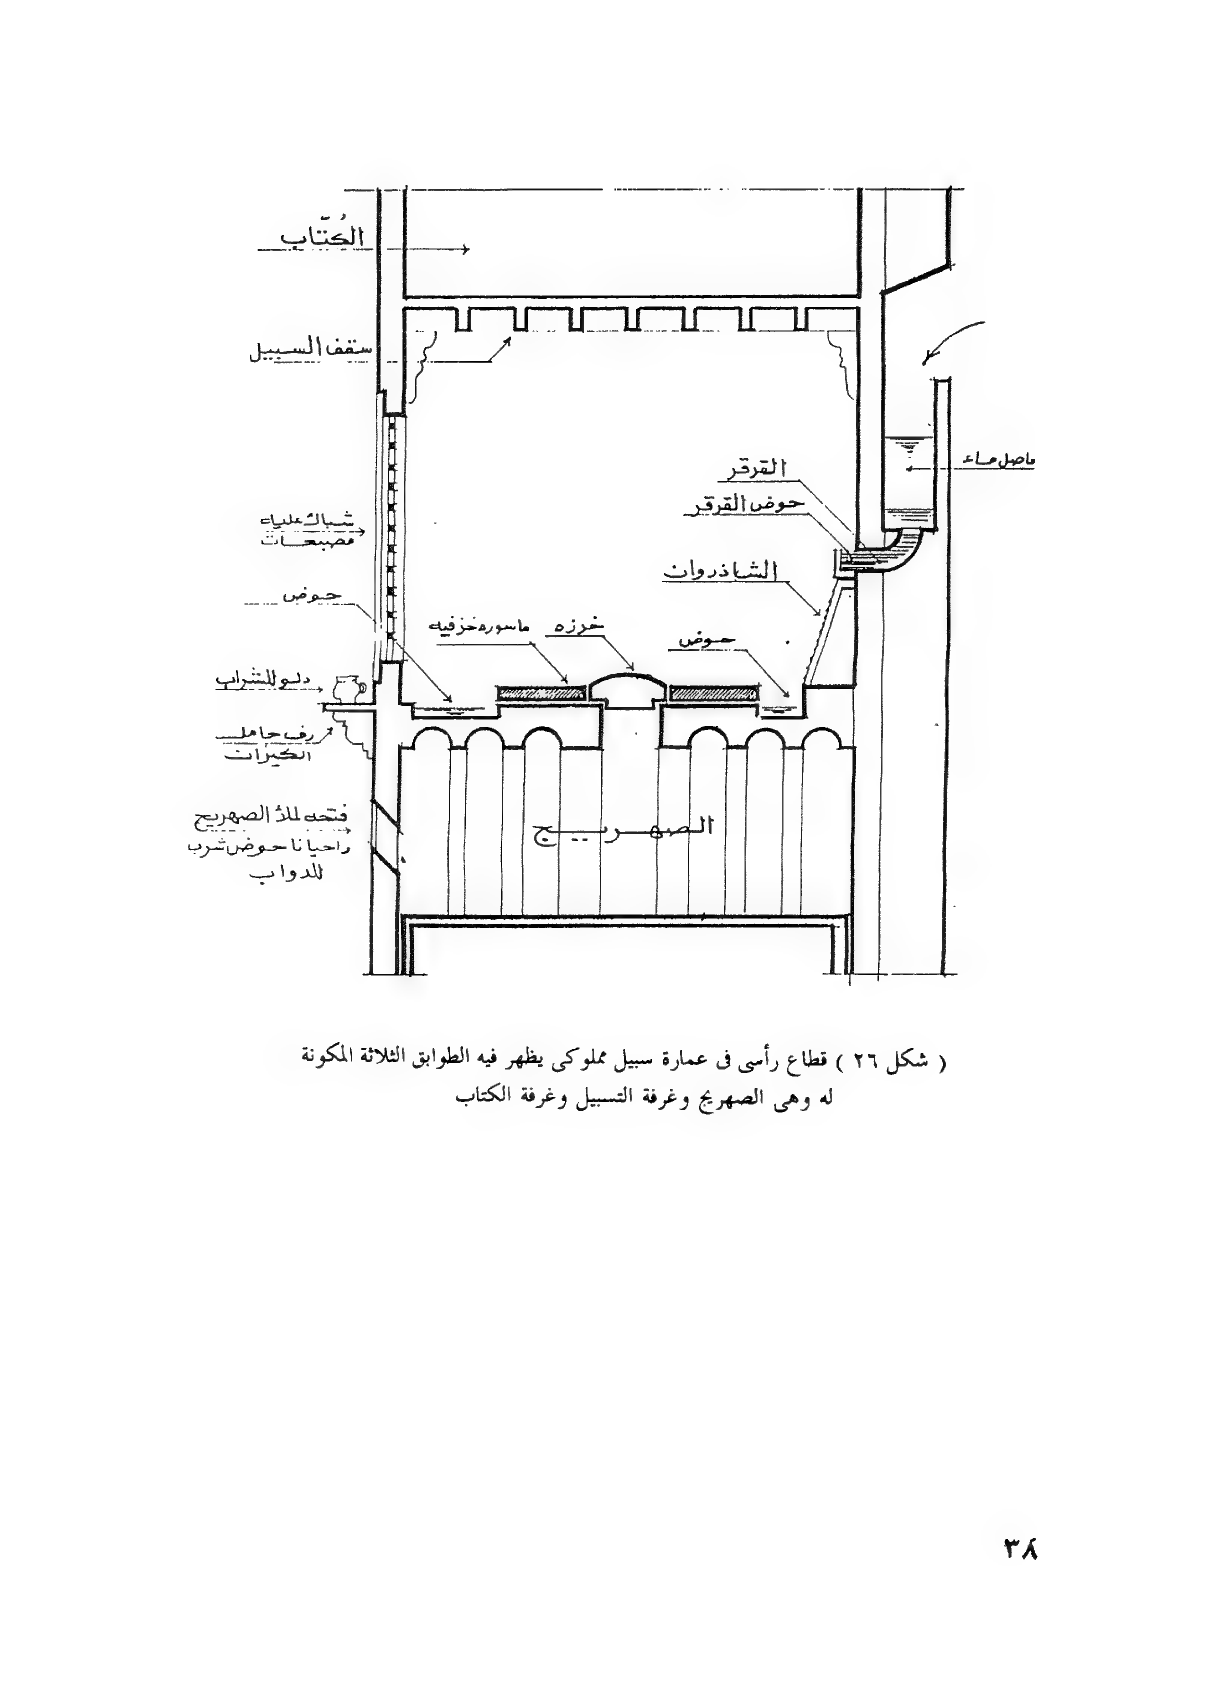 الكُتّاب
سقف السبيل
القرقر
ماصل ماء
حوض القرقر
شباك عليه
مصبعات
الشاذروان
حوض
ماسوره خزفيه
خرزه
حوض
دلو للشراب
رف حامل
الكيزات
الصهريج
فتحه لملأ الصهريج
واحيانا حوض شرب
للدواب
( شكل ٢٦ ) قطاع رأسى فى عمارة سبيل مملوكى يظهر فيه الطوابق الثلاثة المكونة
له وهى الصهريج وغرفة التسبيل وغرفة الكتاب
٣٨